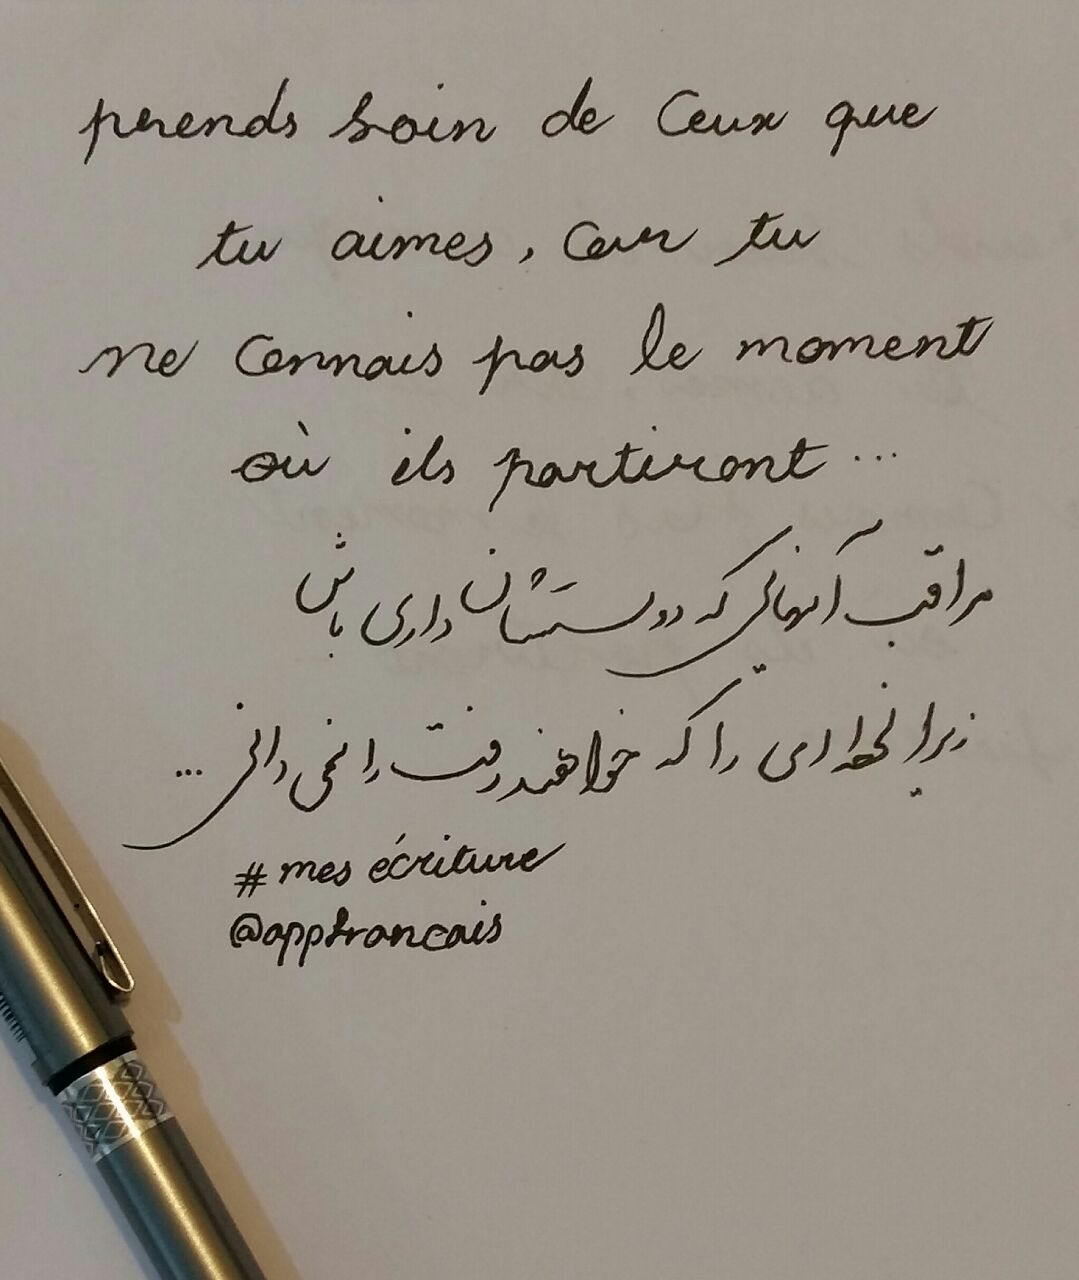 prends soin de ceux que
tu aimes, car tu
ne connais pas le moment
où ils partiront ...
مراقب آنهائی که دوستشان داری باش
زیرا لحظه ای را که خواهند رفت را نمی دانی ...
# mes écriture
@appfrancais